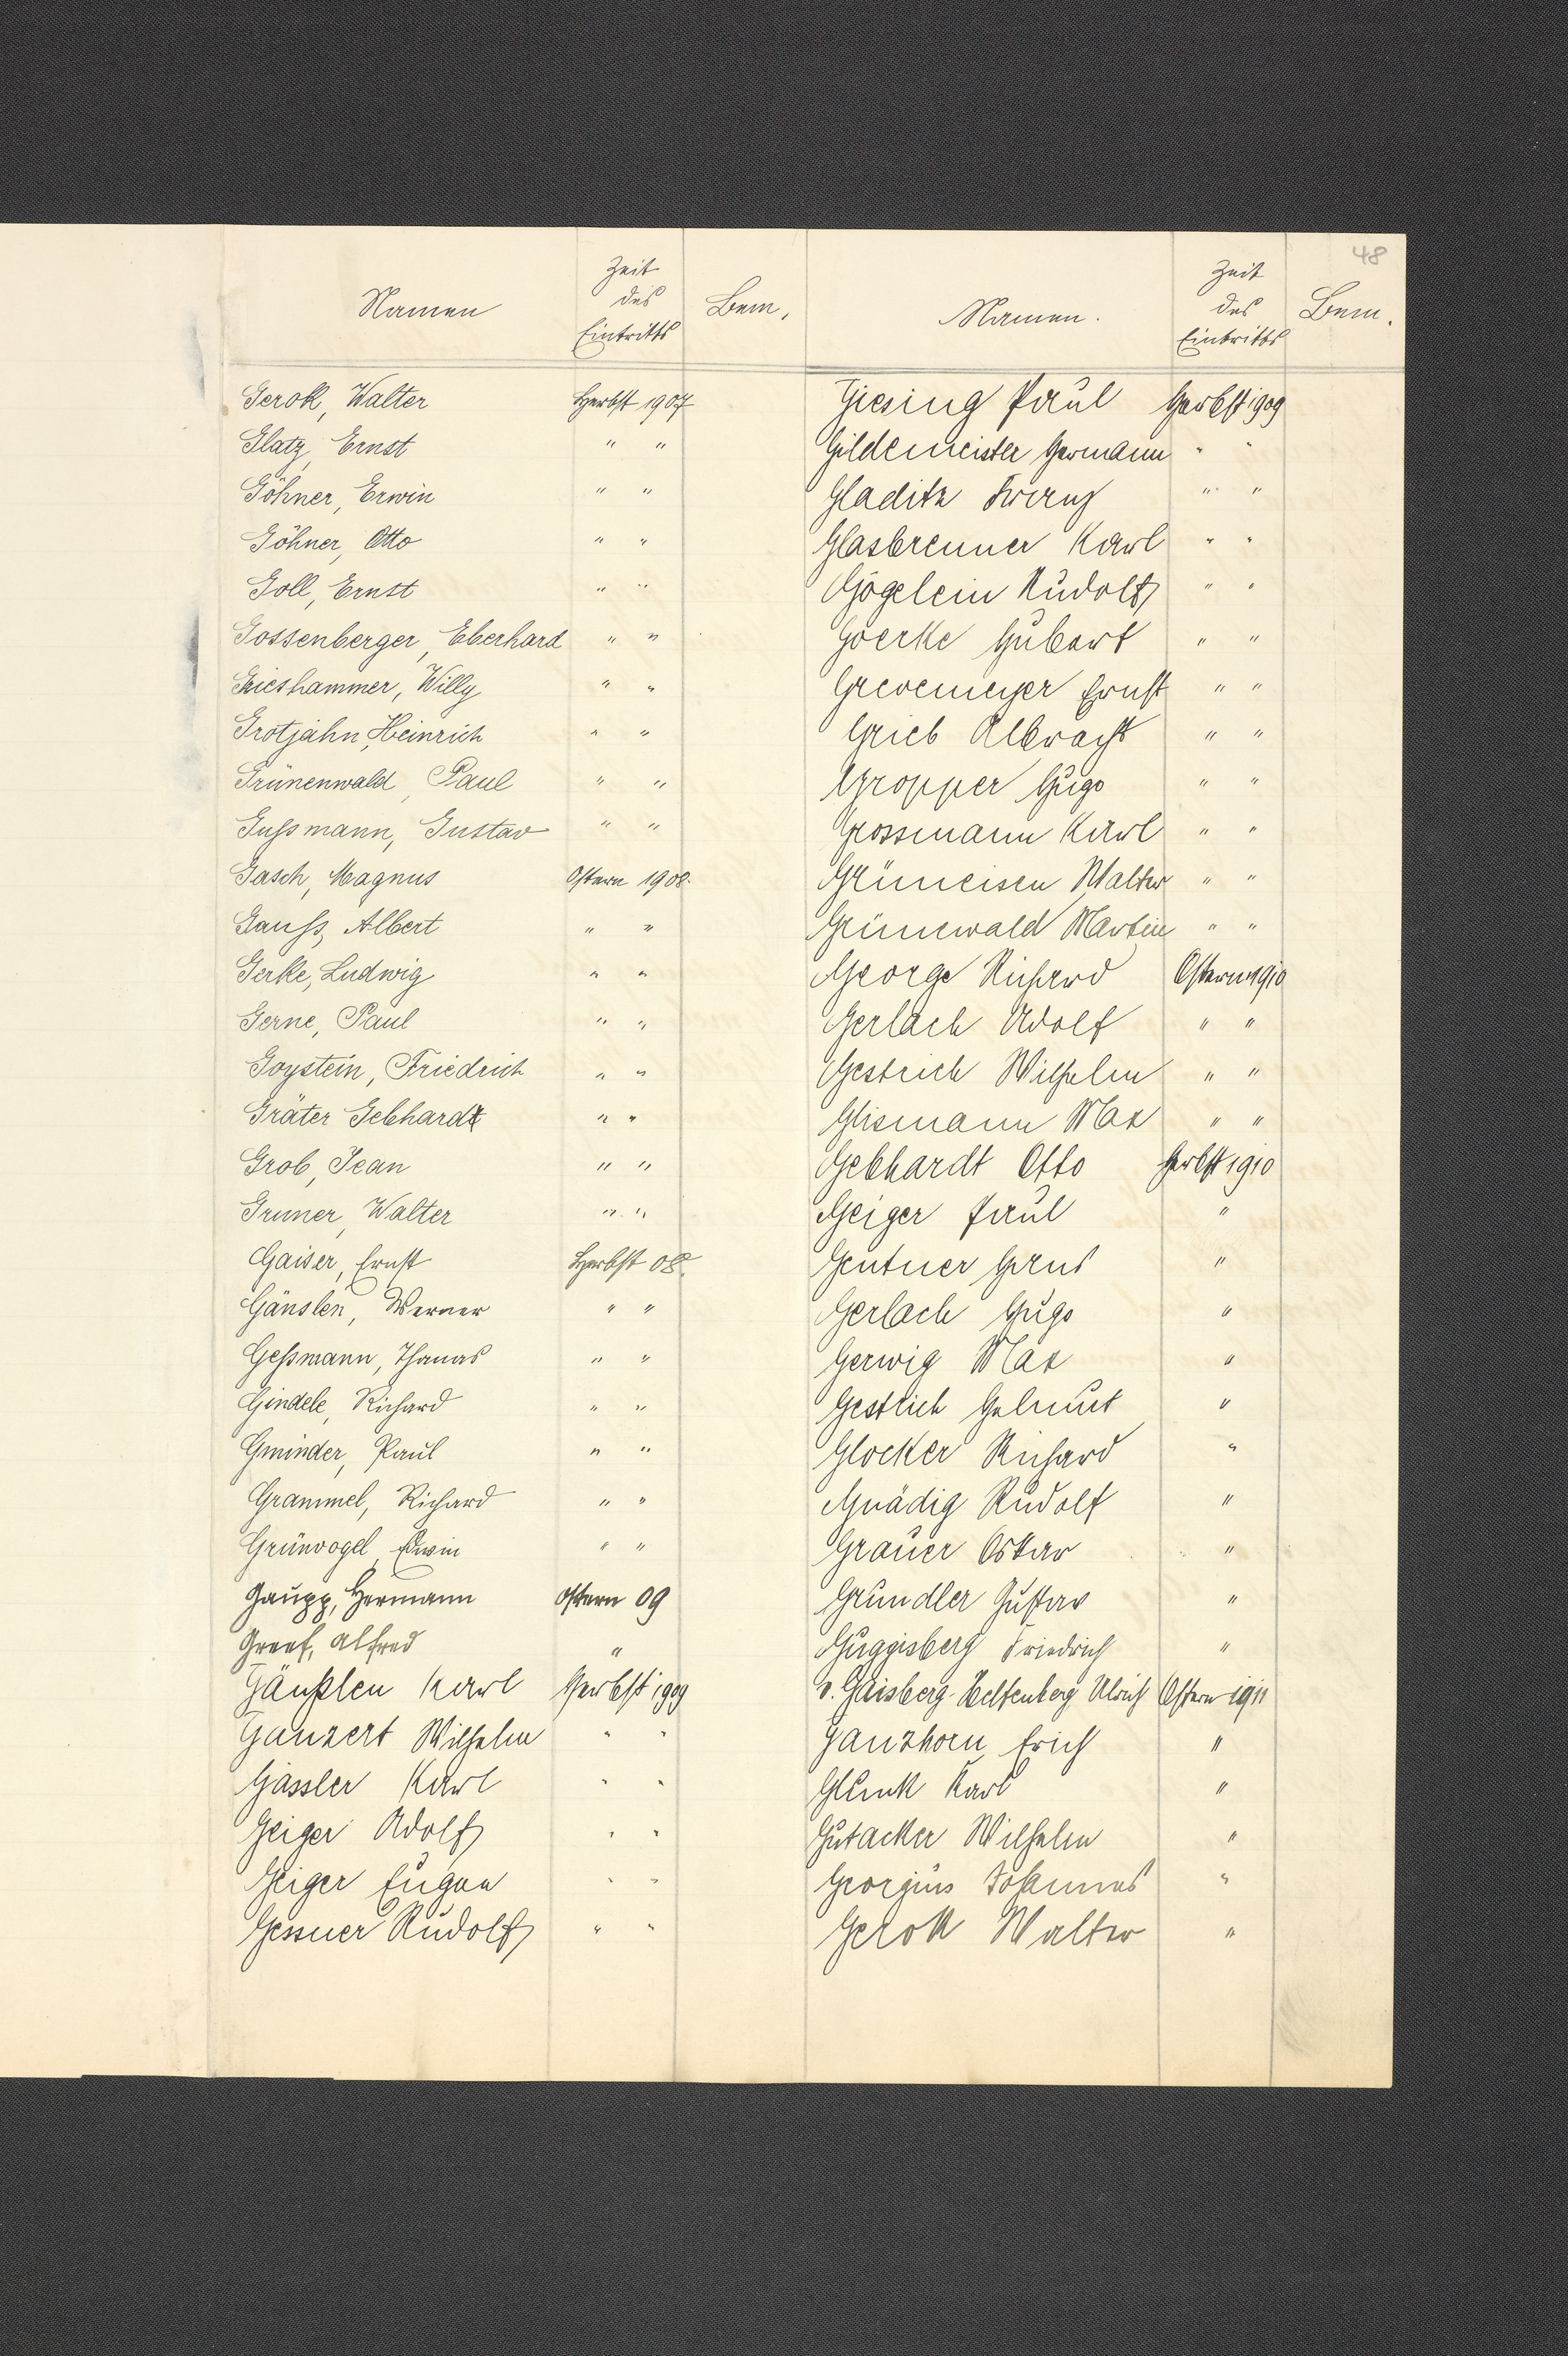 48
Namen
Zeit
des
Eintritts
Bem.
Gerok, Walter Herbst 1907
Glatz, Ernst " "
Göhner, Erwin " "
Göhner, Otto " "
Goll, Ernst " "
Gossenberger, Eberhard " "
Grieshammer, Willy " "
Grotjahn, Heinrich " "
Grünenwald, Paul " "
Gußmann, Gustav " "
Gasch, Magnus Ostern 1908.
Gauß, Albert " "
Gerke, Ludwig " "
Gerne, Paul " "
Goystein, Friedrich " "
Gräter Gebhard " "
Grob, Jean " "
Gruner, Walter " "
Gaiser, Ernst Herbst 08.
Gänslen, Werner " "
Geßmann, Thomas " "
Gindele, Richard " "
Gminder, Paul " "
Grammel, Richard " "
Grünvogel, Edwin " "
Gaupp, Hermann Ostern 09
Greef, Alfred "
Gänßlen Karl Herbst 1909
Ganzert Wilhelm " "
Gassler Karl " "
Geiger Adolf " "
Geiger Eugen " "
Gessner Rudolf " "
Namen.
Zeit
des
Eintritts
Bem.
Giesing Paul Herbst 1909
Gildemeister Hermann " "
Gladitz Franz " "
Glasbrenner Karl " "
Gögelein Rudolf " "
Goerke Hubert " "
Grevemeyer Ernst " "
Grieb Albrecht " "
Gropper Hugo " "
Grossmann Karl " "
Grüneisen Walter " "
Grünewald Martin " "
George Richard Ostern 1910
Gerlach Adolf " "
Gestrich Wilhelm " "
Glismann Max " "
Gebhardt Otto Herbst 1910
Geiger Paul "
Gentner Hans "
Gerlach Hugo "
Gerwig Max "
Gestrich Helmut "
Glocker Richard "
Gnädig Rudolf "
Grauer Oskar "
Grundler Gustav "
Guggisberg Friedrich "
v. Gaisberg-Helfenberg Ulrich Ostern 1911
Ganzhorn, Erich "
Glunk Karl "
Gutacker Wilhelm "
Georgius Johannes "
Gerok Walter "